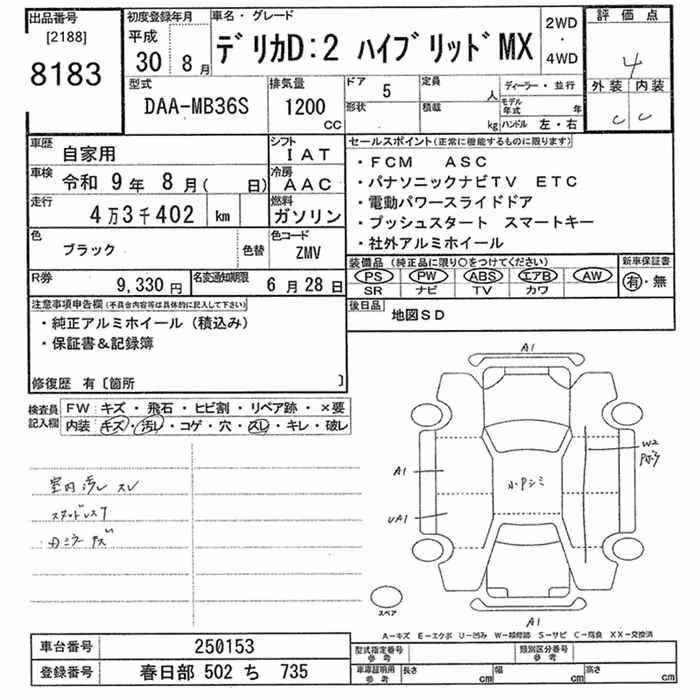 出品番号
[2188]
8183
初度登録年月
平成
30年 8月
車名・グレード
デリカD:2 ハイブリッドMX
2WD
・
4WD
評価点
4
外装 内装
C C
型式
DAA-MB36S
排気量
1200
CC
ドア 5
形状
定員 人
積載 kg
ディーラー・並行
モデル年式 年
ハンドル 左・右
車歴 自家用
シフト IAT
車検 令和 9年 8月( 日)
冷房 AAC
走行 4万3千402 km
燃料 ガソリン
色 ブラック 色替
色コード ZMV
R券 9,330円
名変通知期限 6月28日
セールスポイント(正常に機能するものに限ります)
・FCM ASC
・パナソニックナビTV ETC
・電動パワースライドドア
・プッシュスタート スマートキー
・社外アルミホイール
装備品(純正品に限り○をつけてください)
PS PW ABS エアB AW
SR ナビ TV カワ
新車保証書
有・無
後日品 地図SD
注意事項申告欄(不具合内容等は具体的に記入して下さい)
・純正アルミホイール(積込み)
・保証書&記録簿
修復歴 有〔箇所 〕
検査員記入欄
FW:キズ・飛石・ヒビ割・リペア跡・×要
内装:キズ・汚レ・コゲ・穴・スレ・キレ・破レ
室内汚レ スレ
スタッドレス7
A1
A1
UA1
小Pシミ
W2
Pボヅ
A1
スペア
A-キズ E-エクボ U-凹み W-補修跡 S-サビ C-腐食 XX-交換済
車台番号 250153
登録番号 春日部 502 ち 735
型式指定番号 参考
類別区分番号 参考
車庫証明用 参考
長さ cm
幅 cm
高さ cm